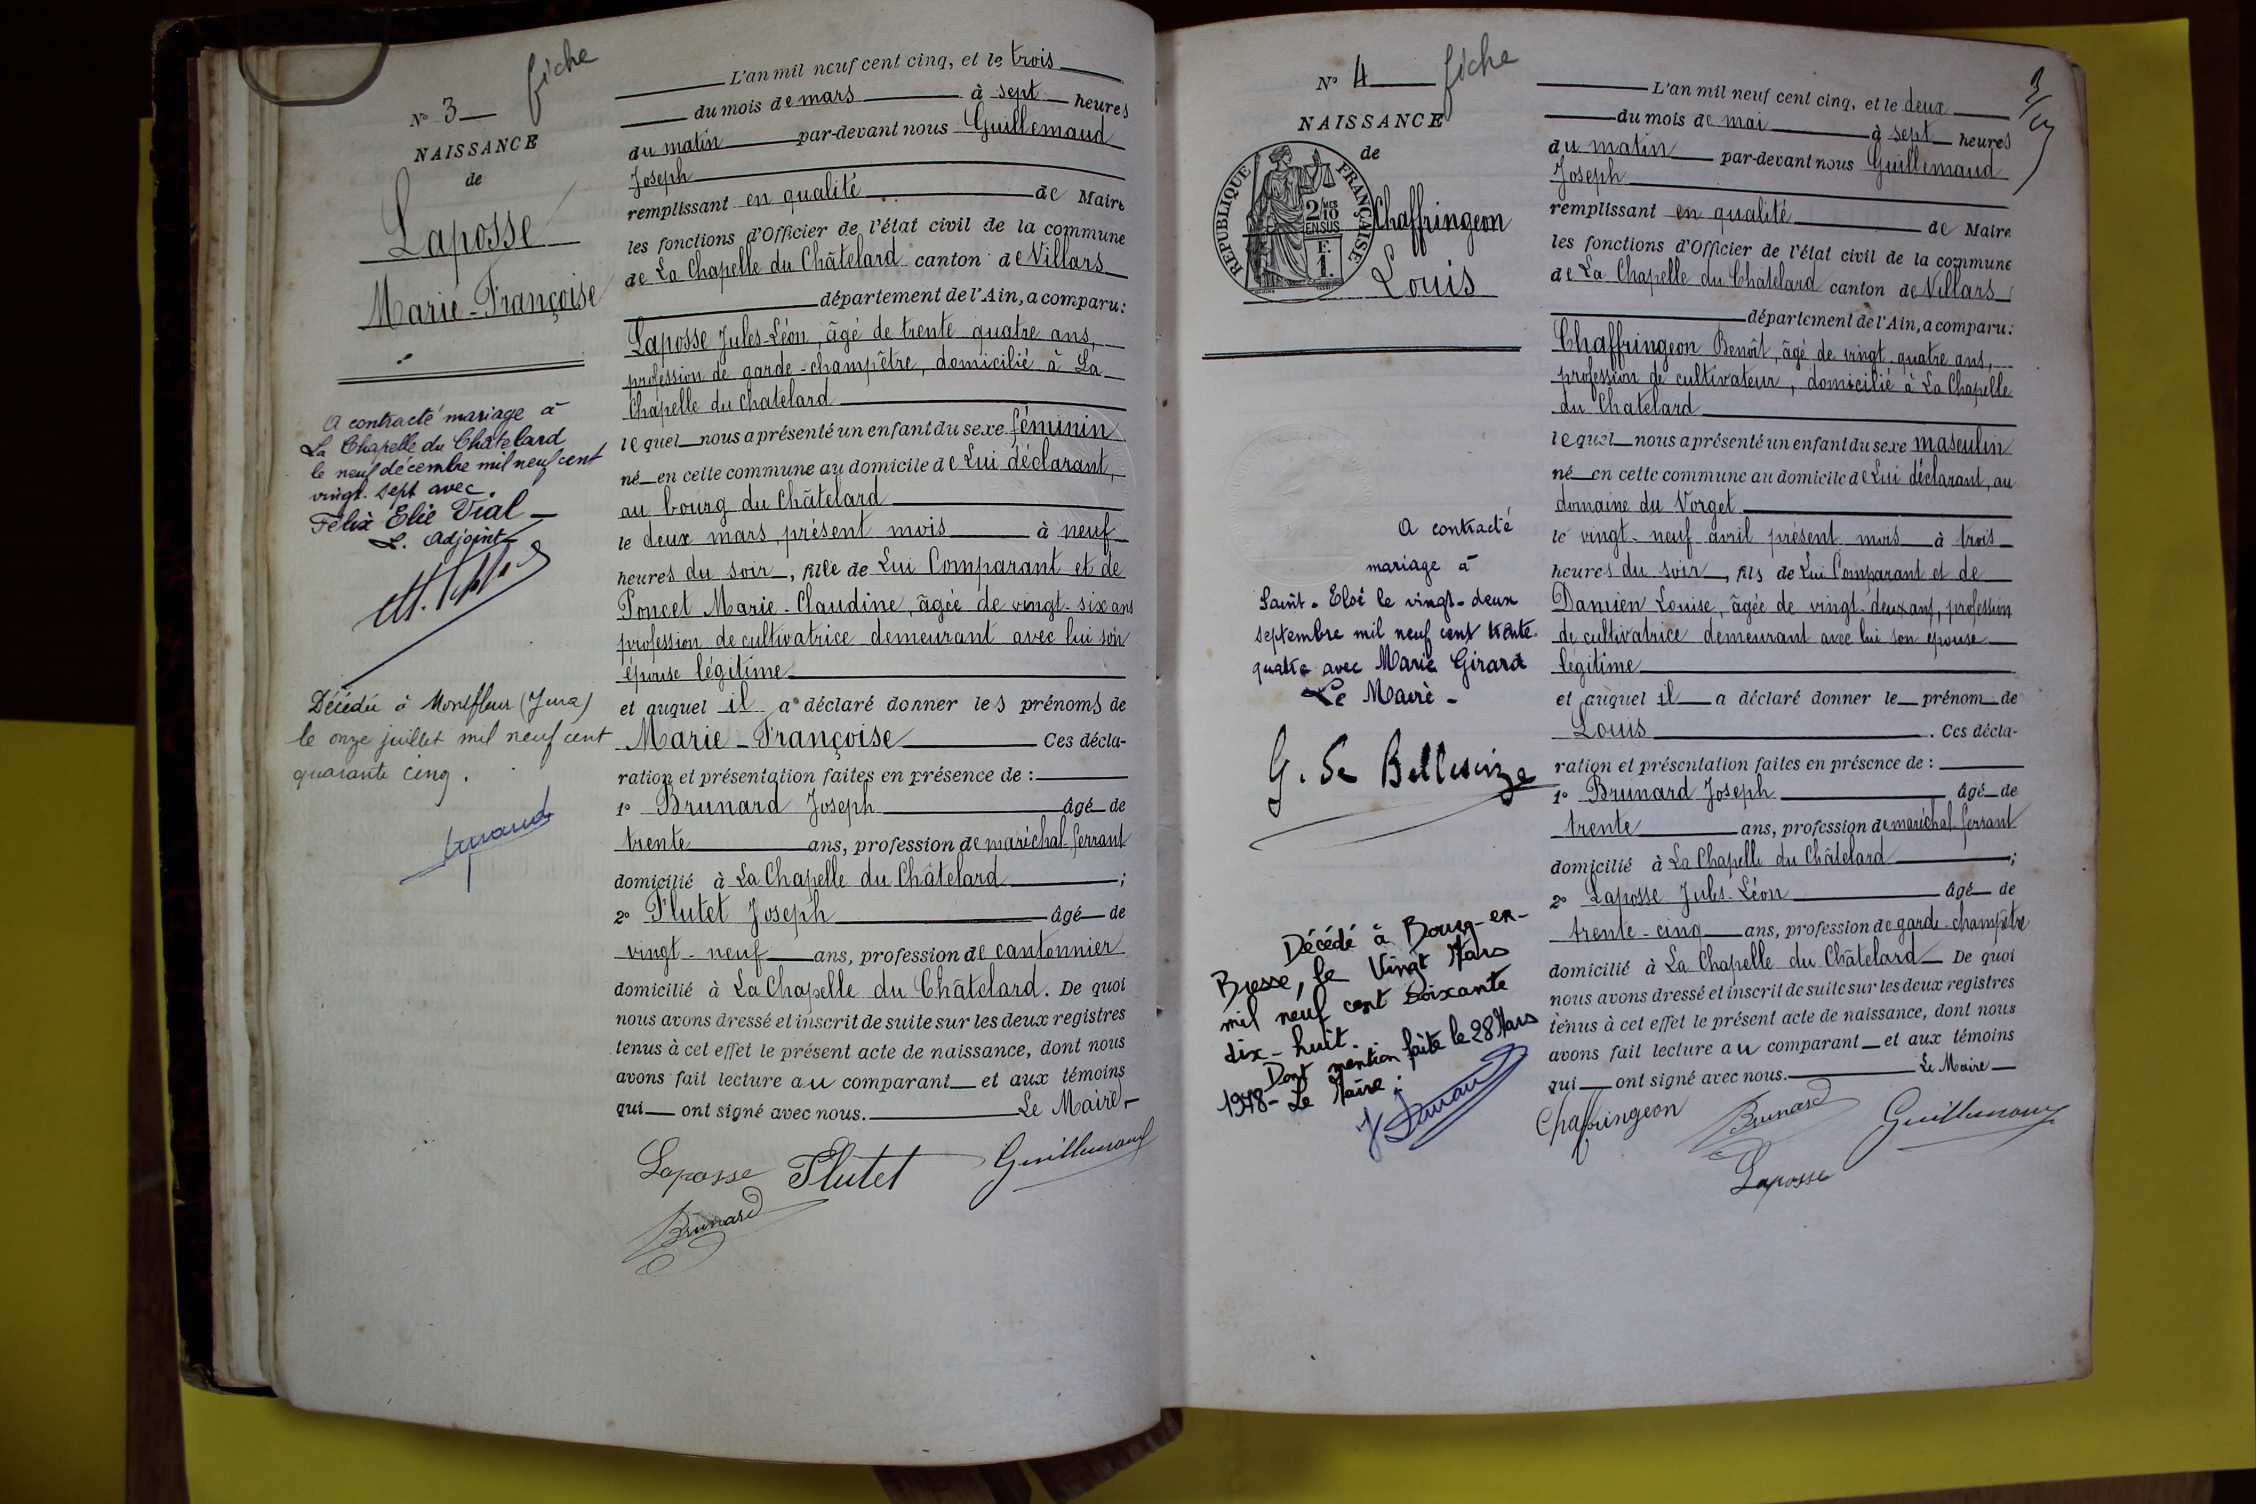 fiche
N° 3
NAISSANCE
de
Laposse
Marie-Françoise
A contracté mariage à
La Chapelle du Châtelard
le neuf décembre mil neuf cent
vingt-sept avec
Félix Elie Vial
L. Adjoint
Décédée à Montfleur (Jura)
le onze juillet mil neuf cent
quarante cinq.
L'an mil neuf cent cinq, et le trois
du mois de mars à sept heures
du matin par-devant nous Guillemaud
Joseph
remplissant en qualité de Maire
les fonctions d'Officier de l'état civil de la commune
de La Chapelle du Châtelard canton de Villars
département de l'Ain, a comparu:
Laposse Jules-Léon, âgé de trente quatre ans,
profession de garde-champêtre, domicilié à La
Chapelle du Chatelard
lequel nous a présenté un enfant du sexe féminin
né en cette commune au domicile de Lui déclarant,
au bourg du Châtelard
le deux mars, présent mois à neuf
heures du soir, fille de Lui Comparant et de
Poncet Marie-Claudine, âgée de vingt-six ans
profession de cultivatrice demeurant avec lui son
épouse légitime
et auquel il a déclaré donner les prénoms de
Marie-Françoise Ces décla-
ration et présentation faites en présence de :
1° Brunard Joseph âgé de
trente ans, profession de maréchal ferrant
domicilié à La Chapelle du Châtelard ;
2° Flutet Joseph âgé de
vingt-neuf ans, profession de cantonnier
domicilié à La Chapelle du Châtelard. De quoi
nous avons dressé et inscrit de suite sur les deux registres
tenus à cet effet le présent acte de naissance, dont nous
avons fait lecture au comparant et aux témoins
qui ont signé avec nous. Le Maire
Laposse Flutet Guillemaud
Brunard
N° 4 fiche
NAISSANCE
de
REPUBLIQUE FRANÇAISE
2/10 EN SUS
F. 1.
Chaffringeon
Louis
A contracté
mariage à
Saint-Eloi le vingt-deux
septembre mil neuf cent trente
quatre avec Marie Girard
Le Maire
Décédé à Bourg-en-
Bresse, le Vingt Mars
mil neuf cent soixante
dix-huit.
Dont mention faite le 28 Mars
1978 - Le Maire:
L'an mil neuf cent cinq, et le deux
du mois de mai à sept heures
du matin par-devant nous Guillemaud
Joseph
remplissant en qualité de Maire
les fonctions d'Officier de l'état civil de la commune
de La Chapelle du Chatelard canton de Villars
département de l'Ain, a comparu:
Chaffringeon Benoît, âgé de vingt-quatre ans,
profession de cultivateur, domicilié à La Chapelle
du Chatelard
lequel nous a présenté un enfant du sexe masculin
né en cette commune au domicile de Lui déclarant, au
domaine du Vorget
le vingt-neuf avril présent mois à trois
heures du soir, fils de Lui Comparant et de
Damien Louise, âgée de vingt-deux ans, profession
de cultivatrice demeurant avec lui son épouse
légitime
et auquel il a déclaré donner le prénom de
Louis . Ces décla-
ration et présentation faites en présence de :
1° Brunard Joseph âgé de
trente ans, profession de maréchal ferrant
domicilié à La Chapelle du Châtelard ;
2° Laposse Jules-Léon âgé de
trente-cinq ans, profession de garde-champêtre
domicilié à La Chapelle du Châtelard De quoi
nous avons dressé et inscrit de suite sur les deux registres
tenus à cet effet le présent acte de naissance, dont nous
avons fait lecture au comparant et aux témoins
qui ont signé avec nous. Le Maire
Chaffringeon Brunard Guillemaud
Laposse